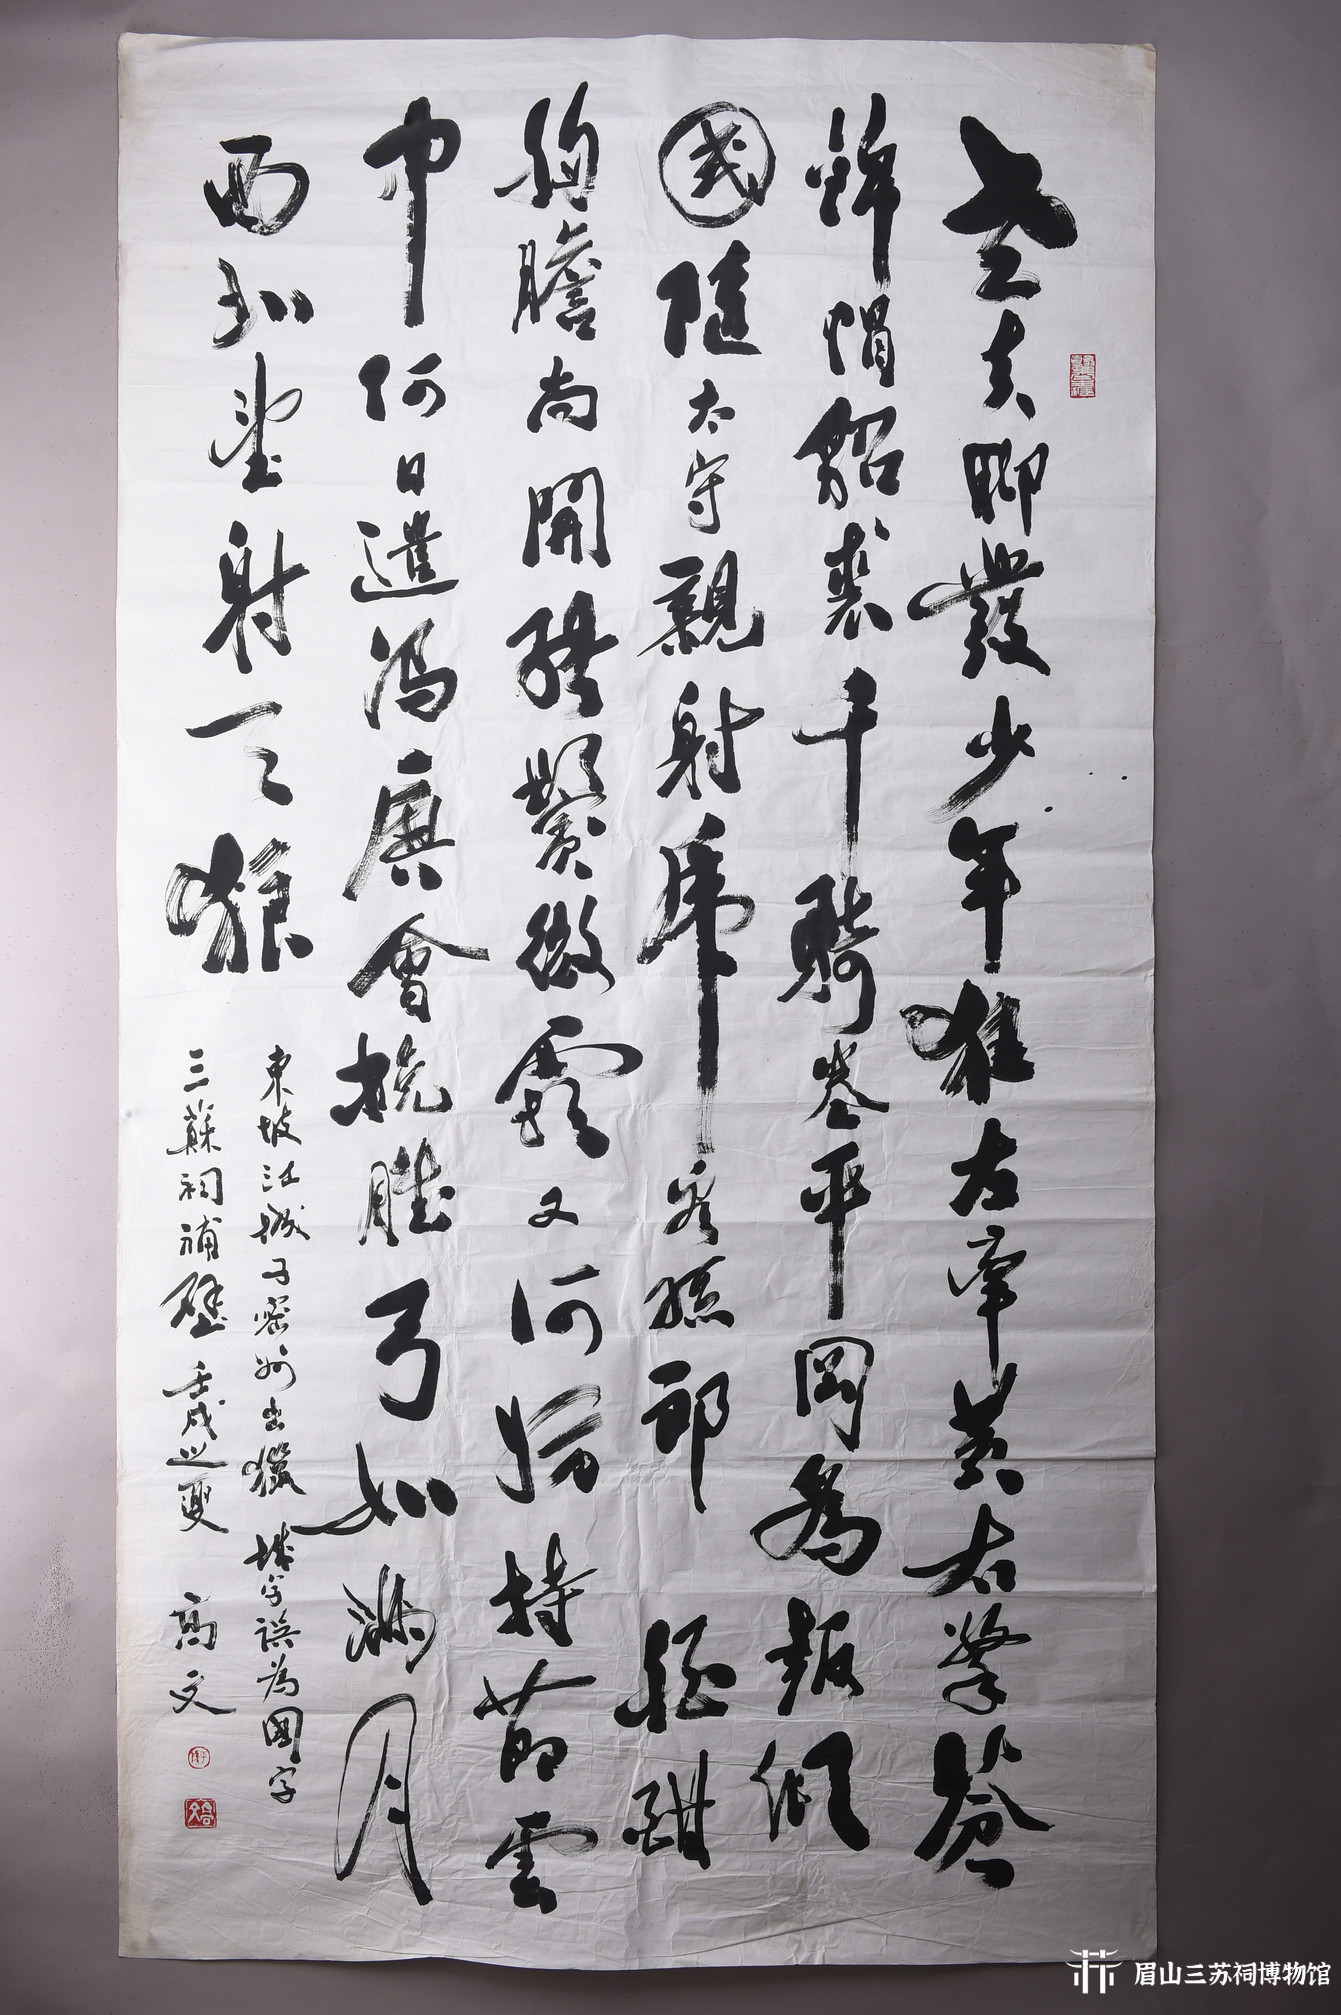 老夫聊發少年狂左牽黃右擎蒼
錦帽貂裘千騎卷平岡為報傾
國隨太守親射虎看孫郎酒酣
胸膽尚開張鬢微霜又何妨持節雲
中何日遣馮唐會挽雕弓如滿月
西北望射天狼
東坡江城子密州出獵 城字誤為國字
三蘇祠補壁 壬戌之夏 高文
高文
眉山三苏祠博物馆